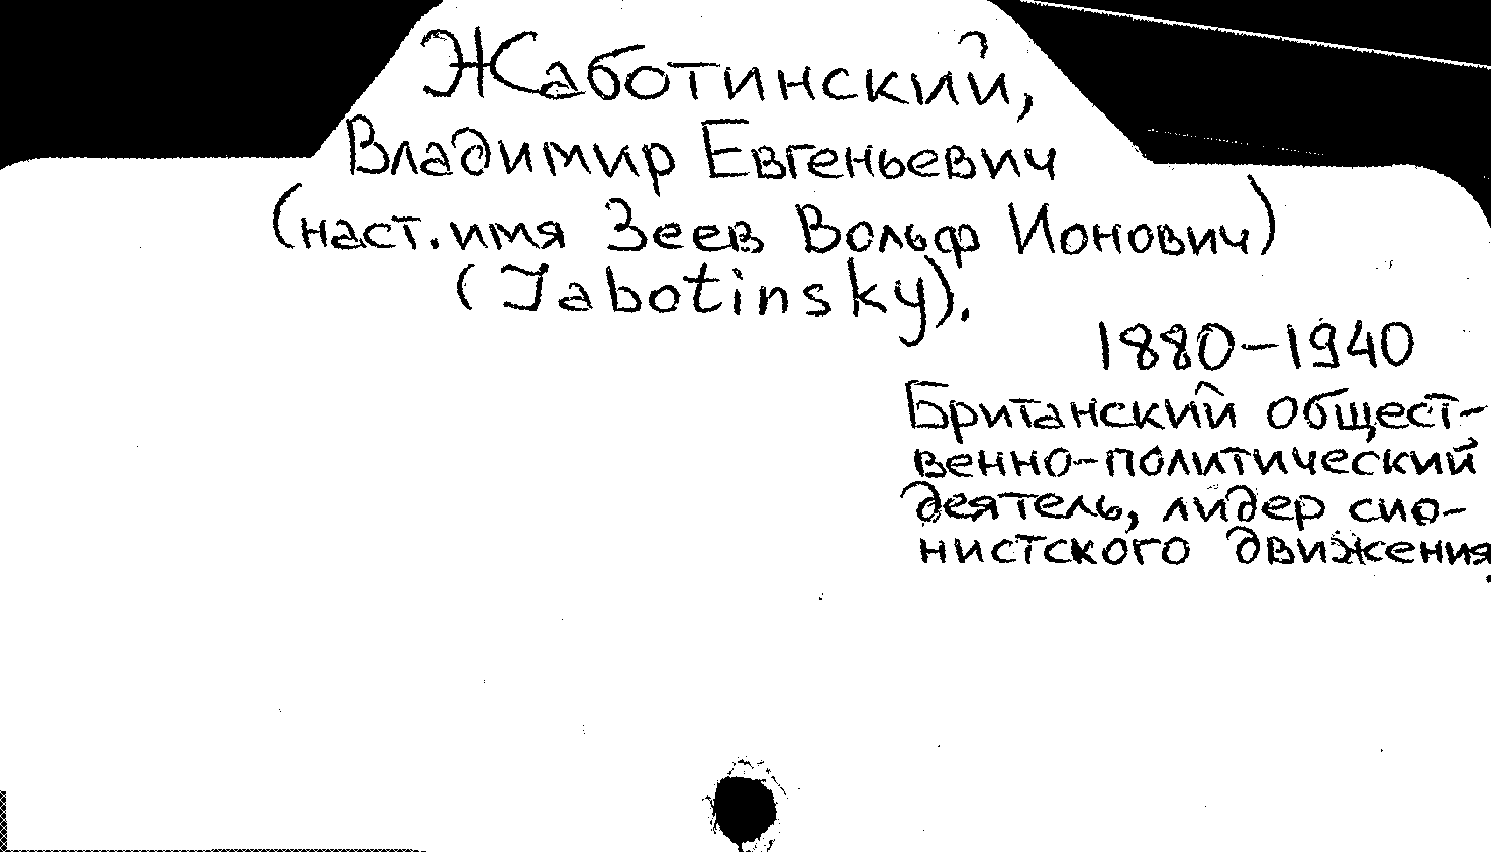 Жаботинский,
Владимир Евгеньевич
(наст. имя Зеев Вольф Ионович)
(Jabotinsky).
1880-1940
Британский общест-
венно-политический
деятель, лидер сио-
нистского движения.